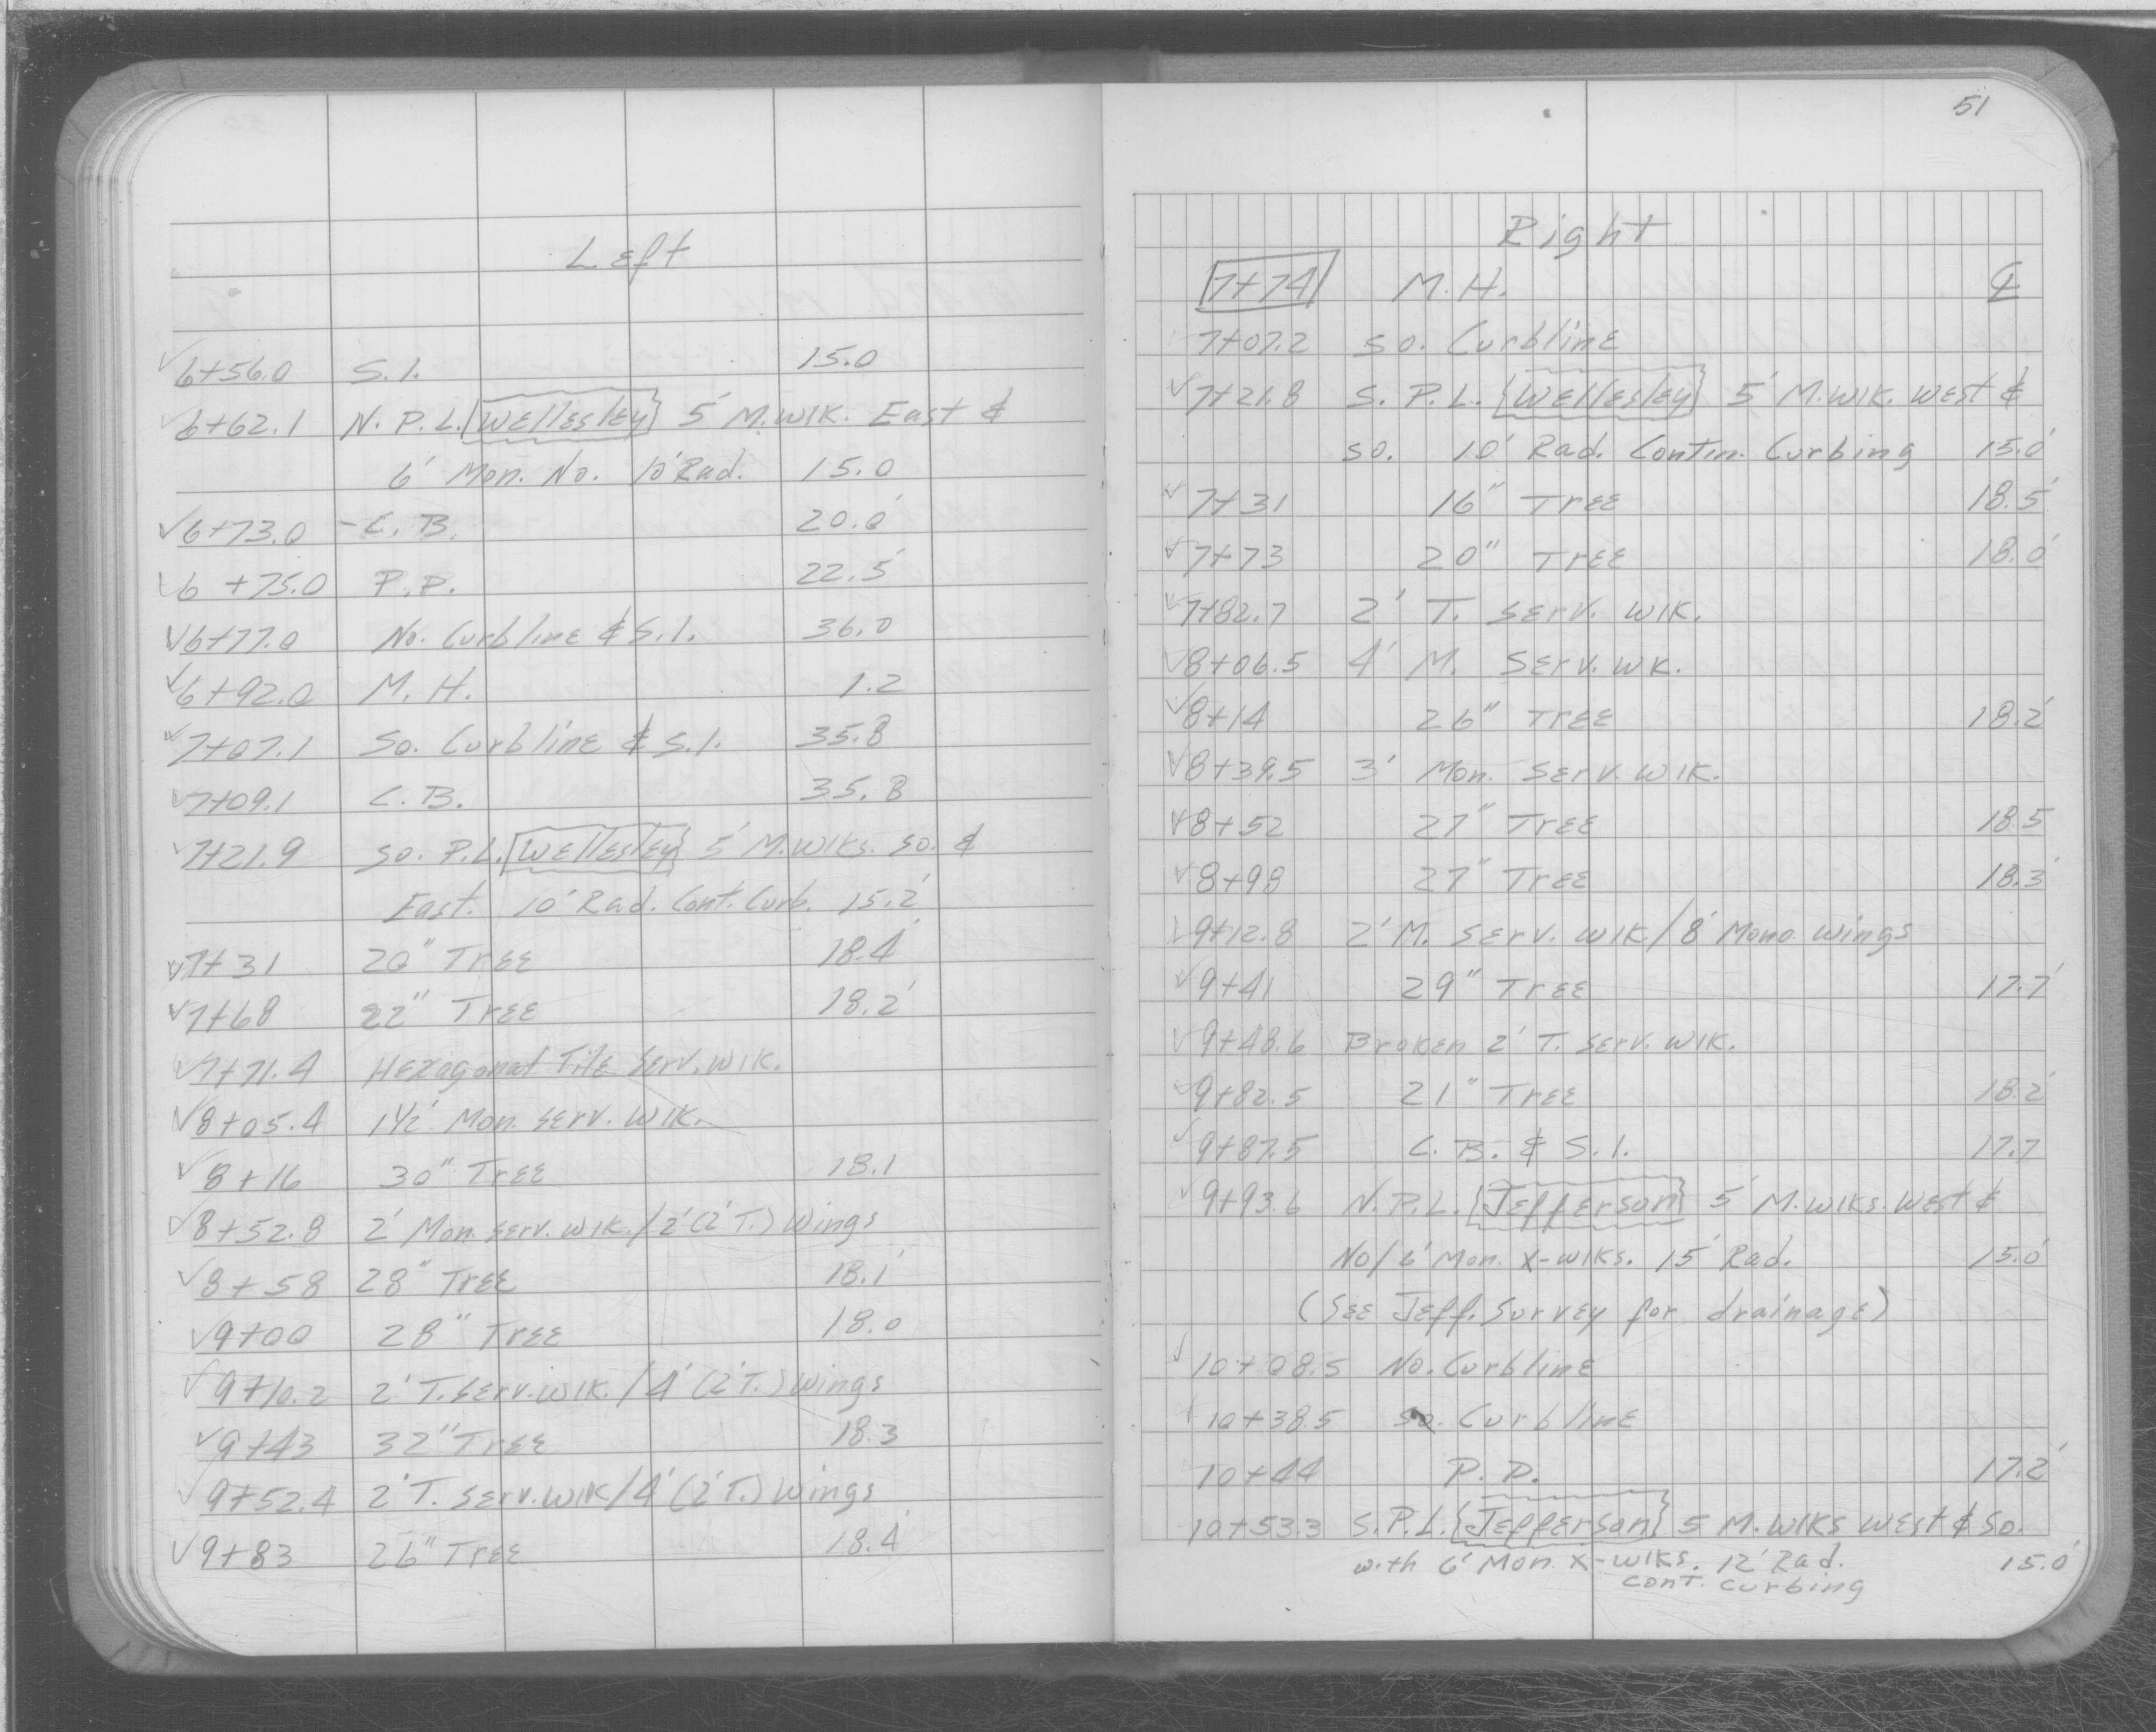 Left
✓6+56.0 S.I. 15.0
✓6+62.1 N.P.L. {Wellesley} 5' M.Wlk. East &
6' Mon. No. 10' Rad. 15.0
✓6+73.0 - C.B. 20.0'
✓6+75.0 P.P. 22.5'
✓6+77.0 No. Curbline & S.I. 36.0
✓6+92.0 M.H. 1.2
✓7+07.1 So. Curbline & S.I. 35.8
✓7+09.1 C.B. 35.8
✓7+21.9 So. P.L. {Wellesley} 5' M.Wlks. So. &
East. 10' Rad. Cont. Curb. 15.2'
✓7+31 20" Tree 18.4'
✓7+68 22" Tree 18.2'
✓7+71.4 Hexagonal Tile Serv. Wlk.
✓8+05.4 1½' Mon. Serv. Wlk.
✓8+16 30" Tree 18.1
✓8+52.8 2' Mon. Serv. Wlk. / 2' (2' T.) Wings
✓8+58 28" Tree 18.1'
✓9+00 28" Tree 18.0
✓9+10.2 2' T. Serv. Wlk. / 4' (2' T.) Wings
✓9+43 32" Tree 18.3
✓9+52.4 2' T. Serv. Wlk / 4' (2' T.) Wings
✓9+83 26" Tree 18.4'
51
Right
7+74 M.H. ℄
7+07.2 So. Curbline
✓7+21.8 S.P.L. {Wellesley} 5' M.Wlk. West &
So. 10' Rad. Contin. Curbing 15.0'
✓7+31 16" Tree 18.5'
✓7+73 20" Tree 18.0'
✓7+82.7 2' T. Serv. Wlk.
✓8+06.5 4' M. Serv. Wk.
✓8+14 26" Tree 18.2'
✓8+39.5 3' Mon. Serv. Wlk.
✓8+52 27" Tree 18.5
✓8+98 27" Tree 18.3'
✓9+12.8 2' M. Serv. Wlk / 8' Mono. Wings
✓9+41 29" Tree 17.7'
✓9+48.6 Broken 2' T. Serv. Wlk.
✓9+82.5 21" Tree 18.2'
✓9+87.5 C.B. & S.I. 17.7
✓9+93.6 N.P.L. {Jefferson} 5' M.Wlks. West &
No / 6' Mon. X-Wlks. 15' Rad. 15.0'
(See Jeff. Survey for drainage)
✓10+08.5 No. Curbline
10+38.5 So. Curbline
10+44 P.P. 17.2'
10+53.3 S.P.L. {Jefferson} 5' M.Wlks West & So.
with 6' Mon. X-Wlks. 12' Rad. 15.0'
Cont. Curbing